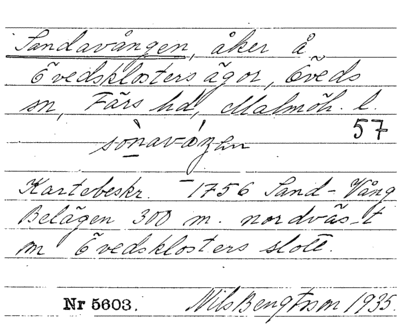 Sandavången, åker å
Övedsklosters ägor, Öveds
sn, Färs hd, Malmöh. l.
57
Kartebeskr. 1756 Sand-Vång
Belägen 300 m. nordväst
om Övedsklosters slott.
Nr 5603. Nils Bengtsson 1935.